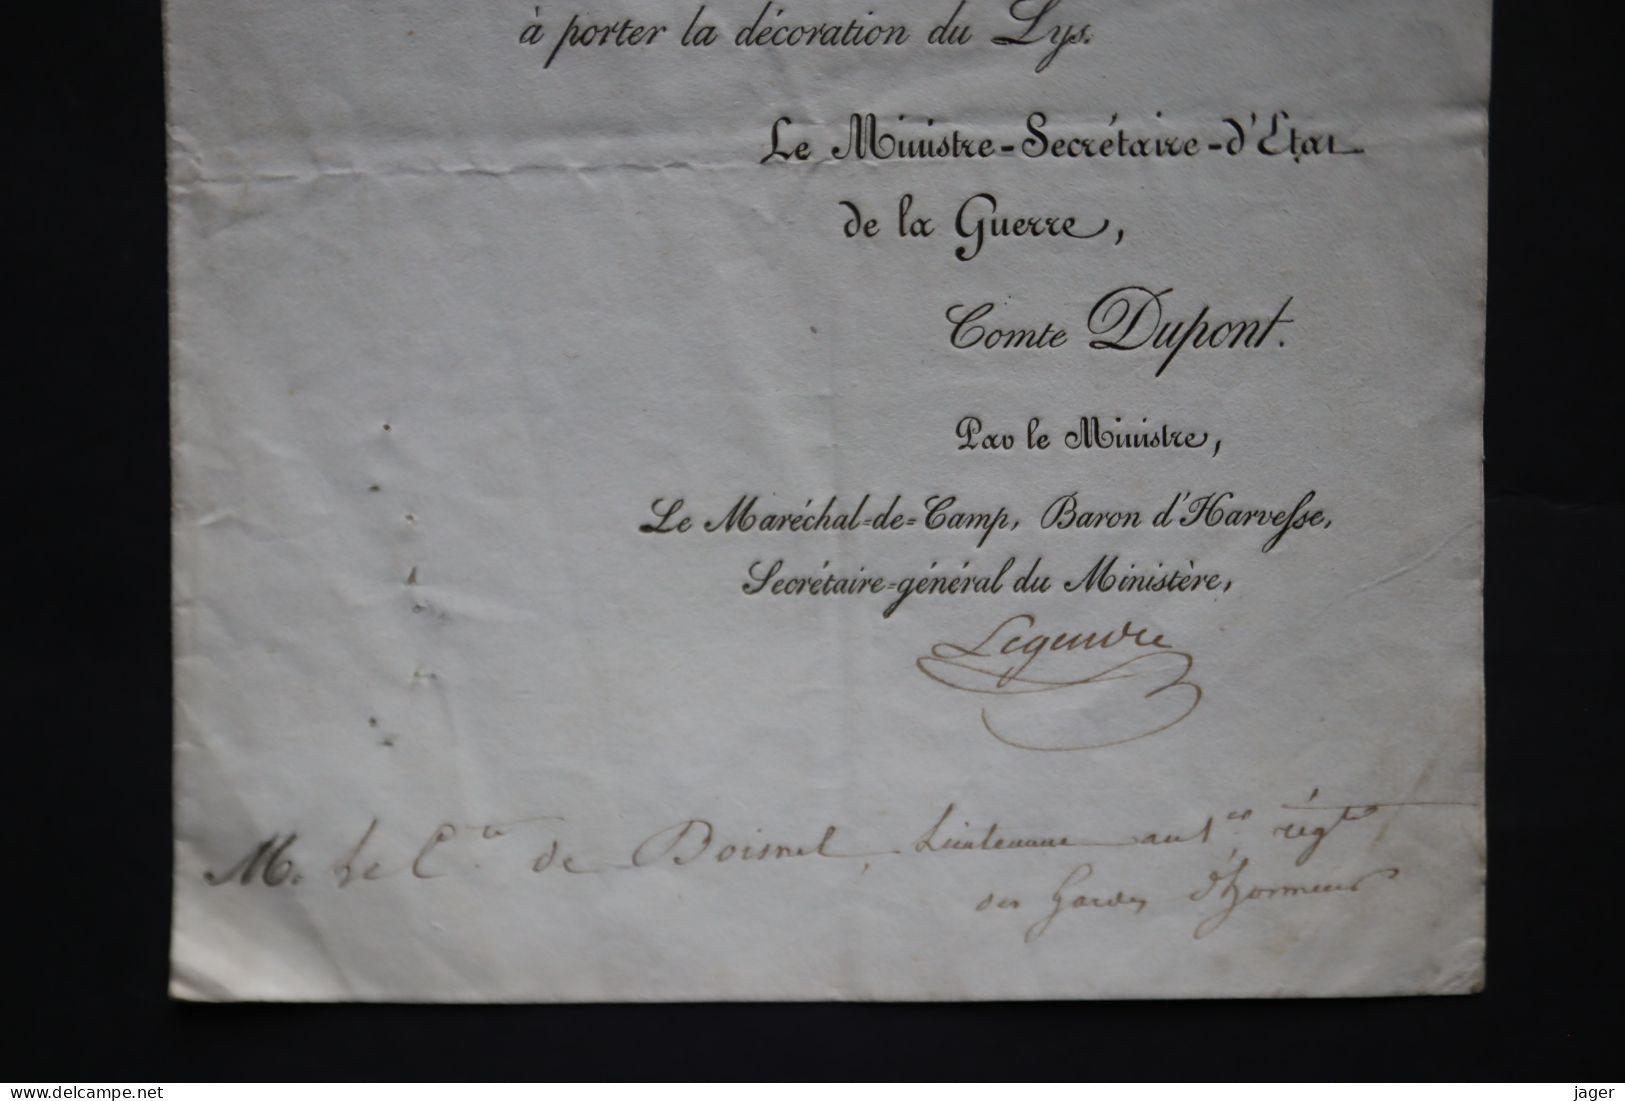 à porter la décoration du Lys.
Le Ministre-Secrétaire-d'Etat
de la Guerre,
Comte Dupont.
Par le Ministre,
Le Maréchal-de-Camp, Baron d'Harvesse,
Secrétaire-général du Ministère,
Legendre
M. Le Cte de Boisnel, Lieutenant au 1er régt
des Gardes d'honneur
www.delcampe.net
jager